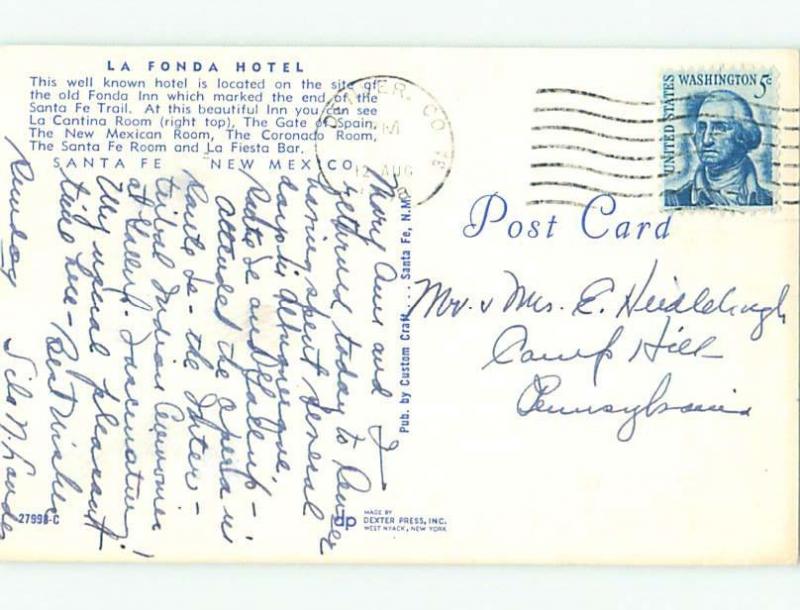 LA FONDA HOTEL
This well known hotel is located on the site of
the old Fonda Inn which marked the end of the
Santa Fe Trail. At this beautiful Inn you can see
La Cantina Room (right top), The Gate of Spain,
The New Mexican Room, The Coronado Room,
The Santa Fe Room and La Fiesta Bar.
SANTA FE NEW MEXICO
Mary Ann and I
returned today to Denver
having spent several
days in Albuquerque,
Santa Fe and Gallup -
attended the opera in
Santa Fe - the Inter-
tribal Indian Ceremonies
at Gallup. Fascinating!
My usual pleasant
time here - Best wishes
Sunday
27998-C
Pub. by Custom Craft . . . Santa Fe, N.M.
dp
MADE BY
DEXTER PRESS, INC.
WEST NYACK, NEW YORK
DENVER, CO
12 AUG
UNITED STATES
WASHINGTON 5c
Post Card
Mr. & Mrs. E.
Camp Hill
Pennsylvania